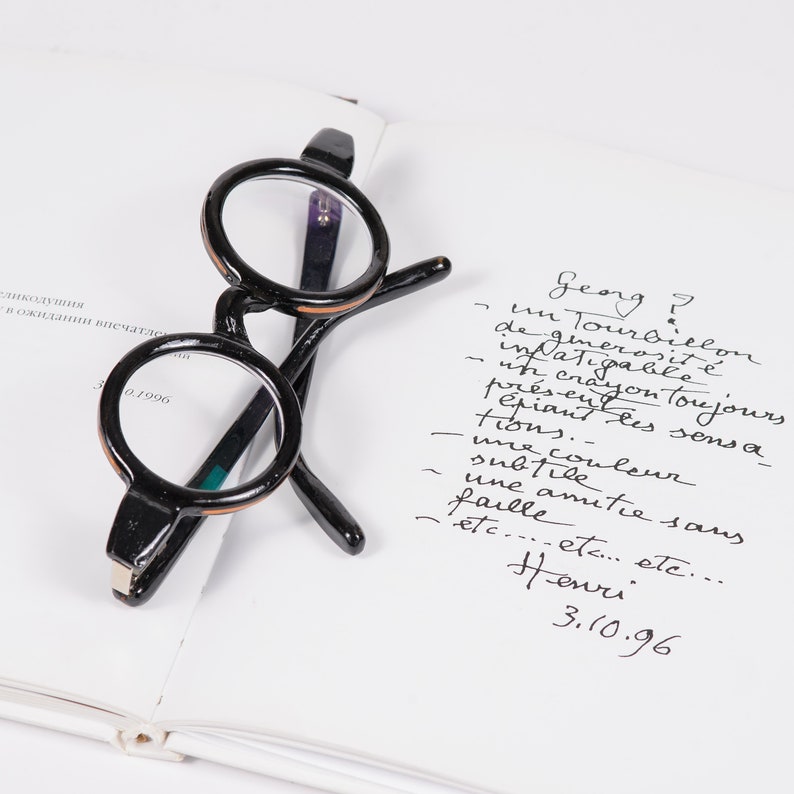 еликодушия
у в ожидании впечатле
3.10.1996
Georg ?
- un Tourbillon
de generosité
infatigable
- un crayon toujours
présent
épiant les sensa-
tions..
- une couleur
subtile
- une amitie sans
faille
- etc.....etc... etc...
Henri
3.10.96